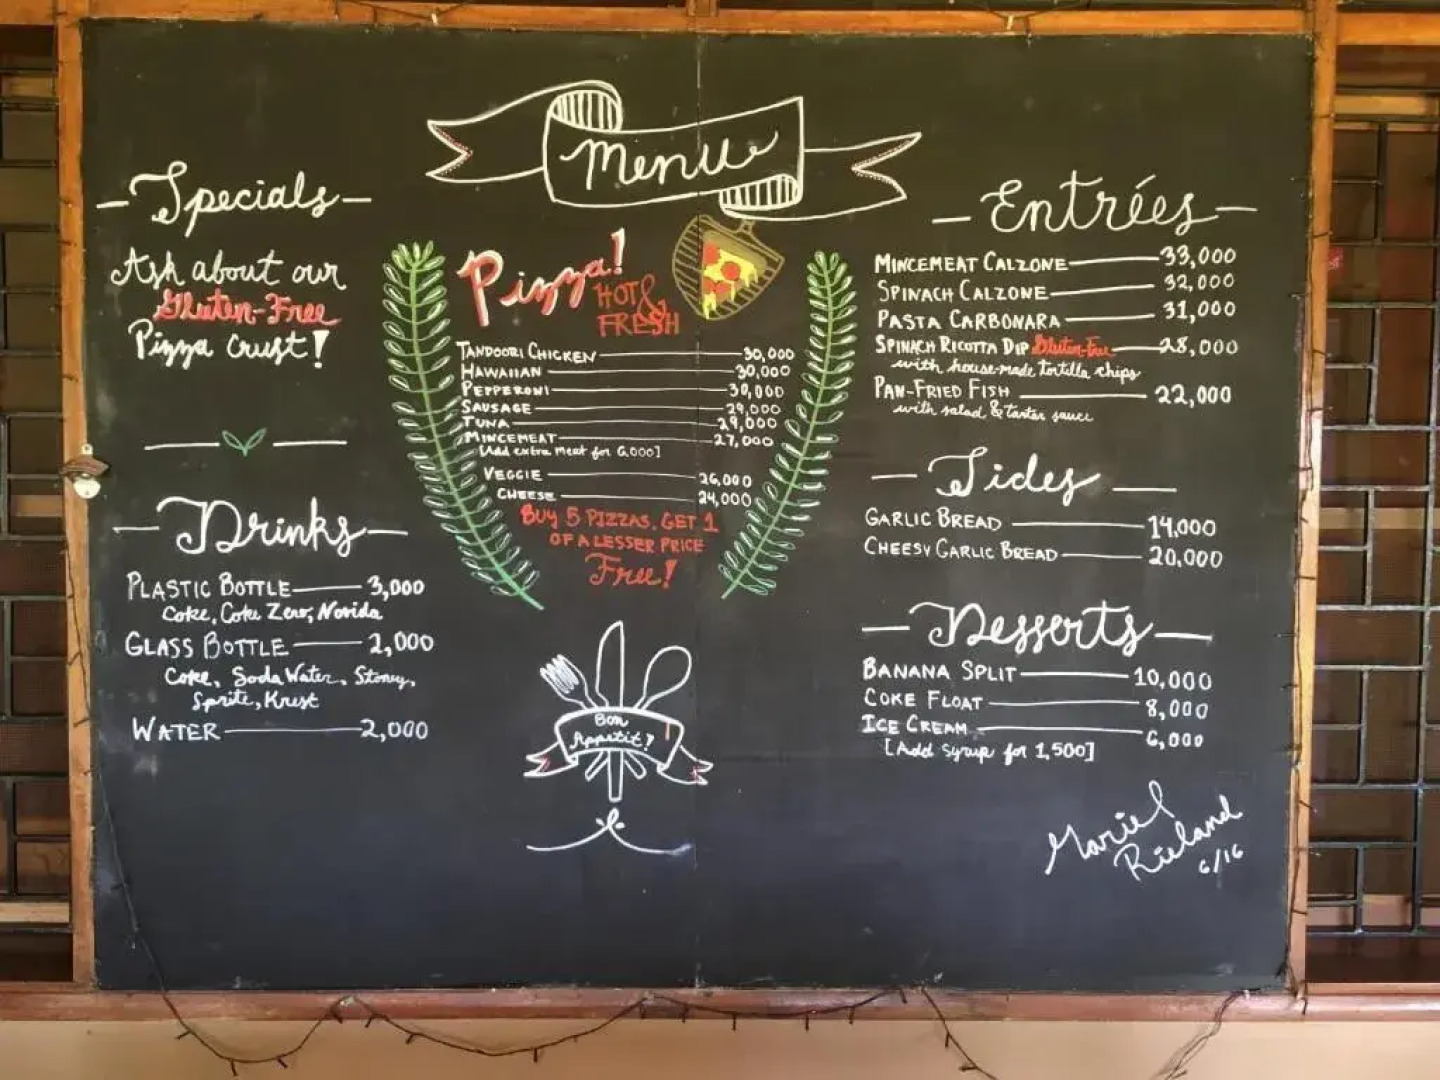 Menu
Specials
Ask about our
Gluten-Free
Pizza crust!
Drinks
PLASTIC BOTTLE 3,000
Coke, Coke Zero, Novida
GLASS BOTTLE 2,000
Coke, Soda Water, Stoney,
Sprite, Krest
WATER 2,000
Pizza!
HOT &
FRESH
TANDOORI CHICKEN 30,000
HAWAIIAN 30,000
PEPPERONI 30,000
SAUSAGE 29,000
TUNA 29,000
MINCEMEAT 27,000
[Add extra meat for 6,000]
VEGGIE 26,000
CHEESE 24,000
BUY 5 PIZZAS, GET 1
OF A LESSER PRICE
Free!
Bon
Appetit!
Entrées
MINCEMEAT CALZONE 33,000
SPINACH CALZONE 32,000
PASTA CARBONARA 31,000
SPINACH RICOTTA DIP Gluten-Free 28,000
with house-made tortilla chips
PAN-FRIED FISH 22,000
with salad & tartar sauce
Sides
GARLIC BREAD 14,000
CHEESY GARLIC BREAD 20,000
Desserts
BANANA SPLIT 10,000
COKE FLOAT 8,000
ICE CREAM 6,000
[Add syrup for 1,500]
Mariel
Rieland
6/16